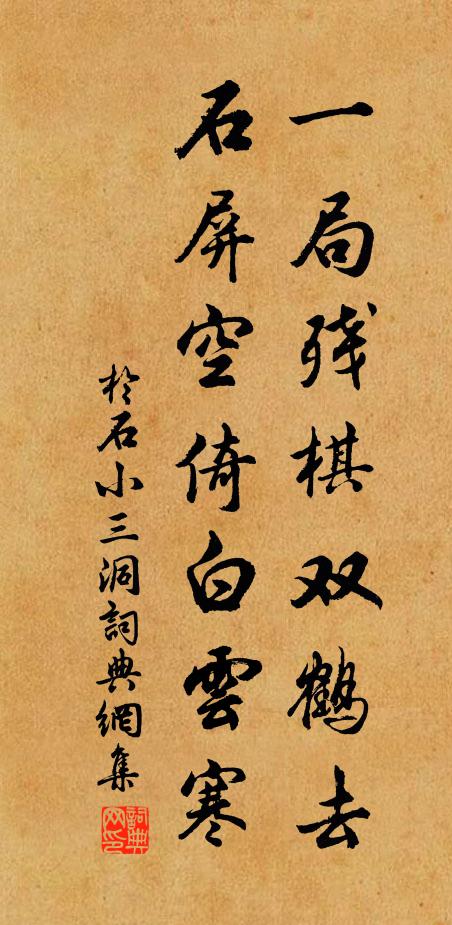 一局残棋双鹤去
石屏空倚白雲寒
於石小三洞詞典網集
詞典網印